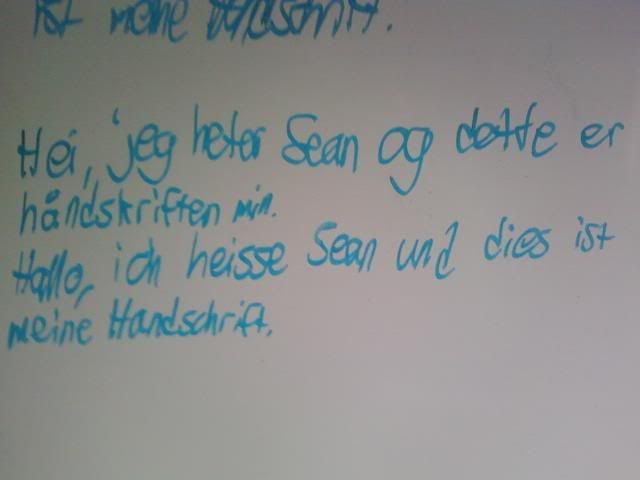 ist meine Handschrift.
Hei, jeg heter Sean og dette er
håndskriften min.
Hallo, ich heisse Sean und dies ist
meine Handschrift.